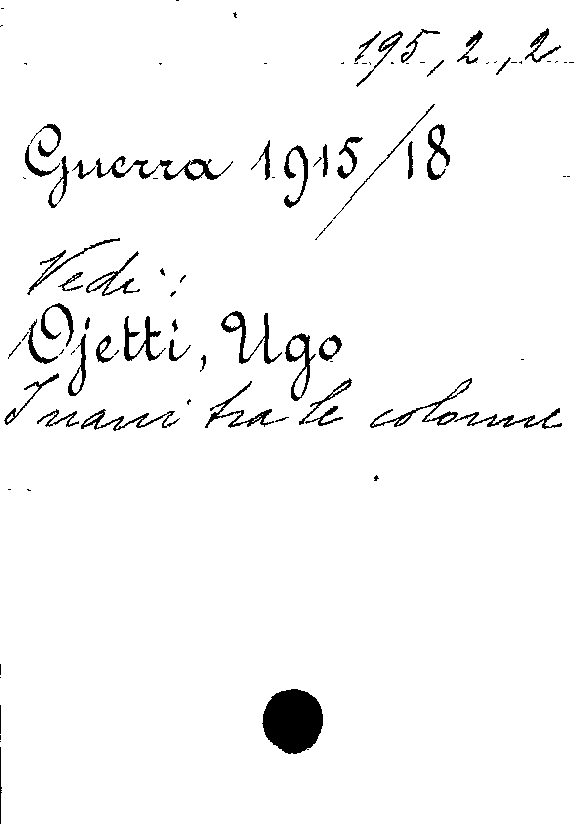 195, 2, 2
Guerra 1915/18
Vedi:
Ojetti, Ugo
I nani tra le colonne